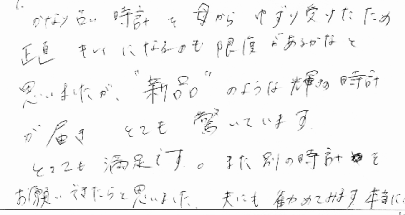 かなり古い時計を母からゆずり受けたため
正直 キレイになるのも限度があるかなと
思いましたが、"新品"のような輝きの時計
が届き とても驚いています
とっても満足です。また別の時計を
お願いできたらと思いました 夫にも勧めてみます 本当に